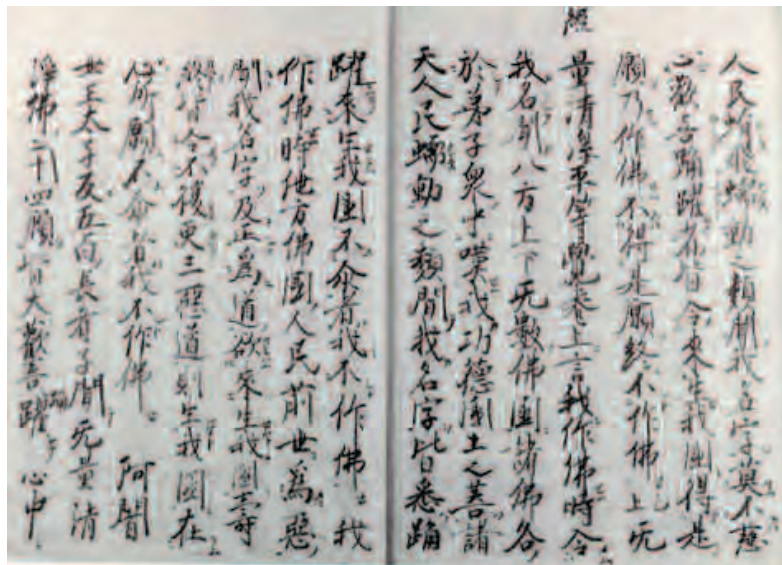 人民蜎飛蠕動之類聞我名字莫不慈
心歡喜踊躍者皆令來生我國得是
願乃作佛不得是願終不作佛 上 无
經
量清淨平等覺卷上言我作佛時令
我名聞八方上下无數佛國諸佛各
於弟子衆中嘆我功德國土之善諸
天人民蠕動之類聞我名字皆悉踊
躍來生我國不尒者我不作佛 我
作佛時他方佛國人民前世爲惡
聞我名字及正爲道欲來生我國壽
終皆令不復更三惡道則生我國在
心所願不尒者我不作佛 阿闍
世王太子及五百長者子聞无量清
淨佛二十四願皆大歡喜踊躍 心中